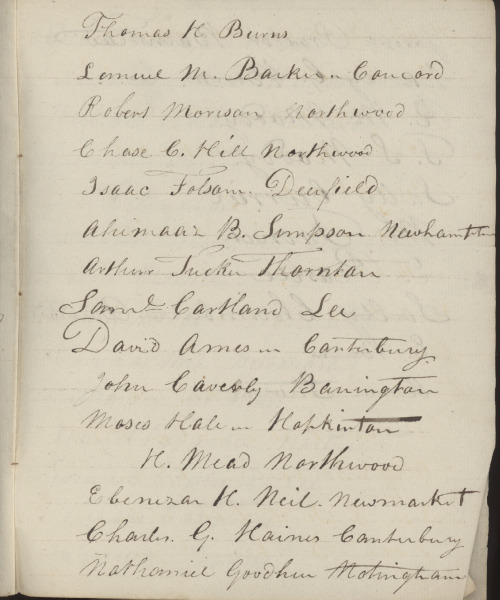 Thomas H Burns
Lemuel M. Barker. Concord
Robert Morison Northwood
Chase C. Hill Northwood
Isaac Folsom. Deerfield
Ahimaaz B. Simpson Newhampton
Arthur Tucker Thornton
Saml Cartland Lee
David Ames in Canterbury
John Caverly Barrington
Moses Hale in Hopkinton
H. Mead Northwood
Ebenezar H. Neil. Newmarket
Charles. G. Haines Canterbury
Nathaniel Goodhue Notingham